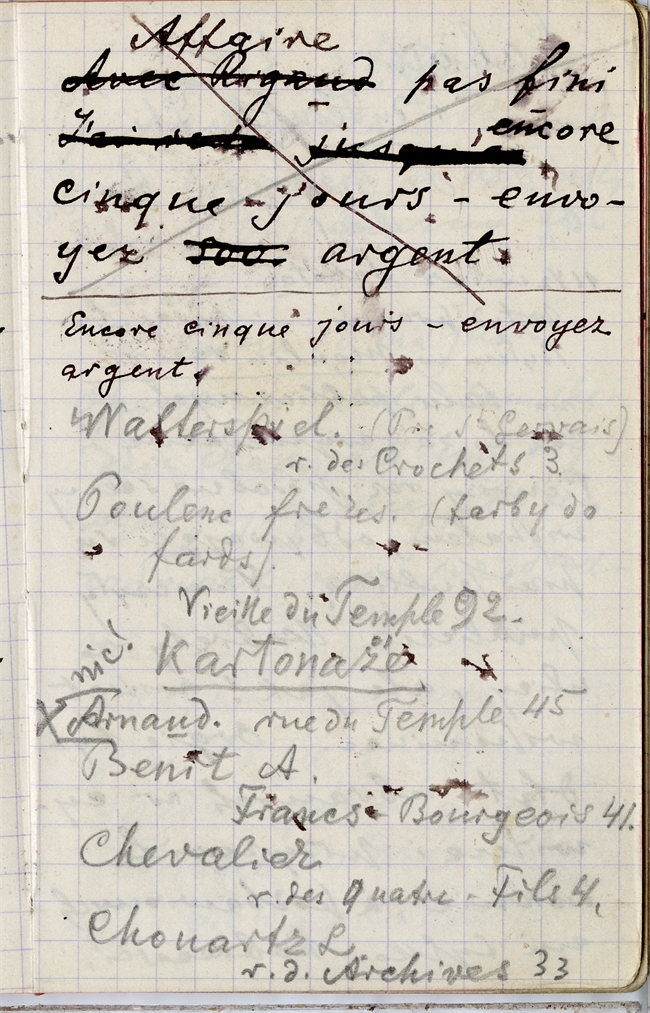 Affaire
Avec Rigaud pas fini
J'ai reste jusqu encore
cinque jours - envo-
yez 500. argent.
Encore cinque jours - envoyez
argent.
Walterspiel. (Pré St Gervais)
r. des Crochets 3.
Poulenc frères. (farby do
fards)
Vieille du Temple 92.
nic!
Kartonaże
X Arnaud. rue du Temple 45
Benit A.
Francs-Bourgeois 41.
Chevalier
r. des Quatre-Fils 4.
Chouartz L
r. d. Archives 33